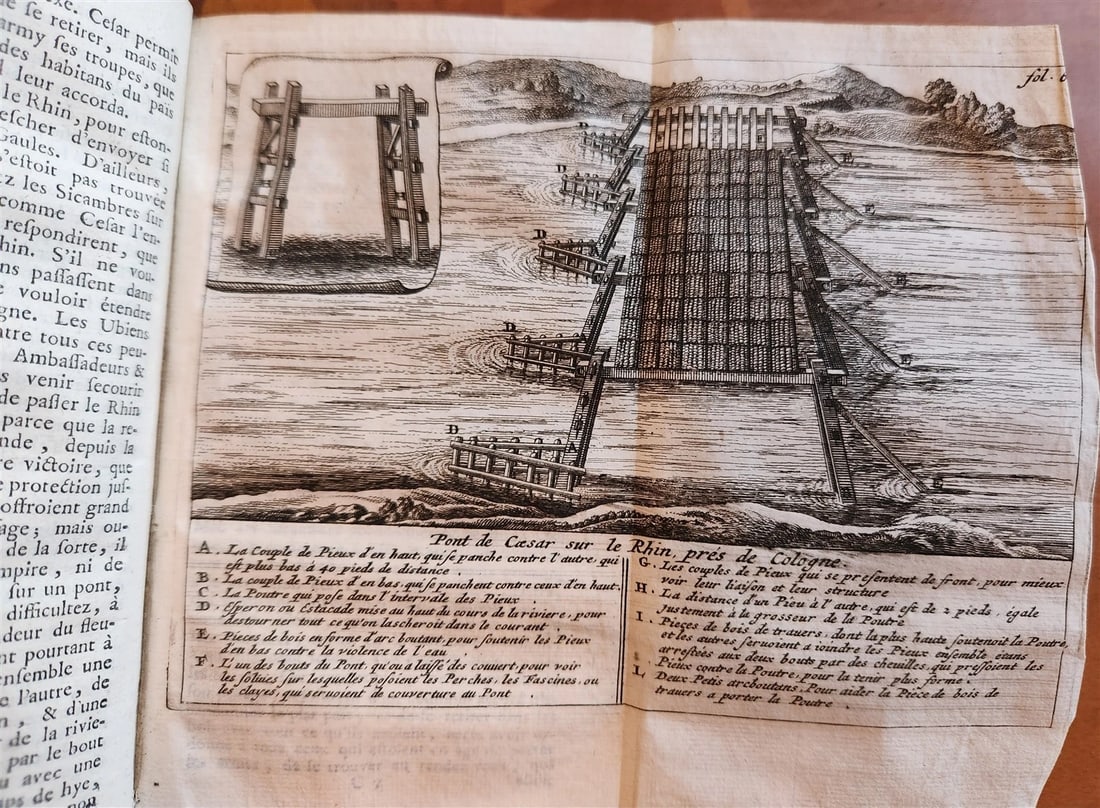 xe. Cesar permit
e se retirer, mais ils
army ses troupes, que
des habitans du païs
l leur accorda.
le Rhin, pour eston-
escher d'envoyer si
Gaules. D'ailleurs,
s'estoit pas trouvée
ez les Sicambres sur
comme Cesar l'en-
respondirent, que
hin. S'il ne vou-
ns passassent dans
e vouloir étendre
gne. Les Ubiens
ntre tous ces peu-
Ambassadeurs &
s venir secourir
de passer le Rhin
parce que la re-
nde, depuis la
re victoire, que
e protection jus-
offroient grand
age; mais ou-
de la sorte, il
mpire, ni de
sur un pont,
difficultez, à
deur du fleu-
nt pourtant à
ensemble une
e l'autre, de
n, & d'une
r de la rivie-
par le bout
u avec une
ps de hye,
non
fol.
D
D
D
D
D
E
E
E
E
E
Pont de Cæsar sur le Rhin, prés de Cologne.
A. La Couple de Pieux d'en haut, qui se panche contre l'autre, qui
est plus bas à 40 pieds de distance.
B. La couple de Pieux d'en bas, qui se panchent contre ceux d'en haut.
C. La Poutre qui pose dans l'intervale des Pieux
D. Esperon ou Estacade mise au haut du cours de la riviere, pour
destourner tout ce qu'on lascheroit dans le courant.
E. Pieces de bois en forme d'arc boutant, pour soutenir les Pieux
d'en bas contre la violence de l'eau.
F. L'un des bouts du Pont, qu'on a laissé des couvert, pour voir
les solives sur lesquelles posoient les Perches, les Fascines, ou
les clayes, qui servoient de couverture au Pont.
G. Les couples de Pieux qui se presentent de front, pour mieux
voir leur liaison et leur structure
H. La distance d'un Pieu à l'autre, qui est de 2 pieds, égale
Justement à la grosseur de la Poutre
I. Pieces de bois de travers, dont la plus haute soutenoit la Poutre,
et les autres servoient a joindre les Pieux ensemble étans
arrestées aux deux bouts par des chevilles, qui pressoient les
Pieux contre la Poutre, pour la tenir plus ferme.
L. Deux Petis arcboutans, Pour aider la Piece de bois de
travers a porter la Poutre.